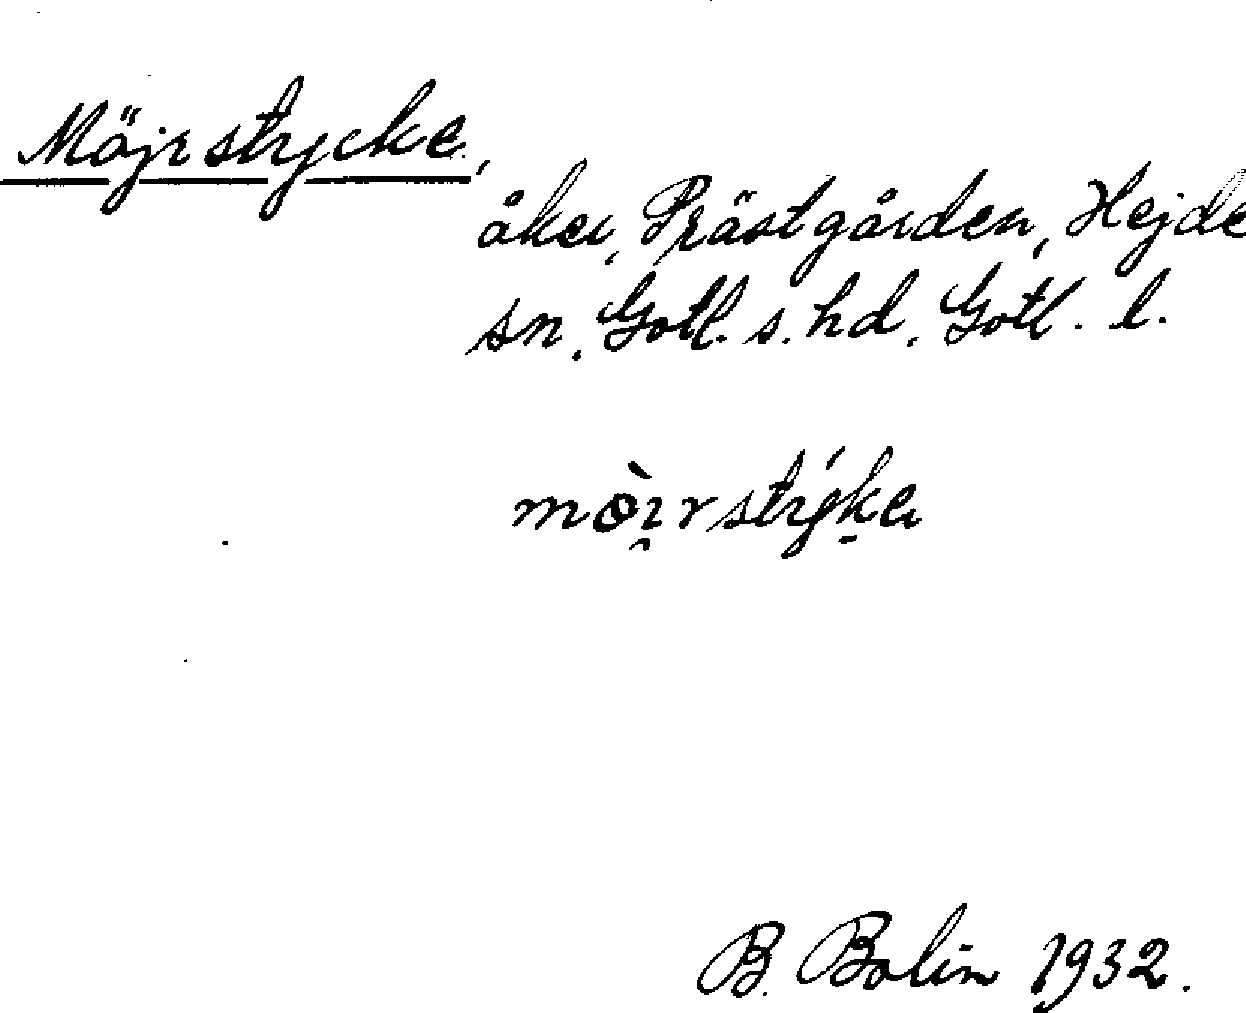 Möjrstycke,
åker, Prästgården, Hejde
sn. Gotl. s. hd. Gotl. l.
B. Bolin 1932.